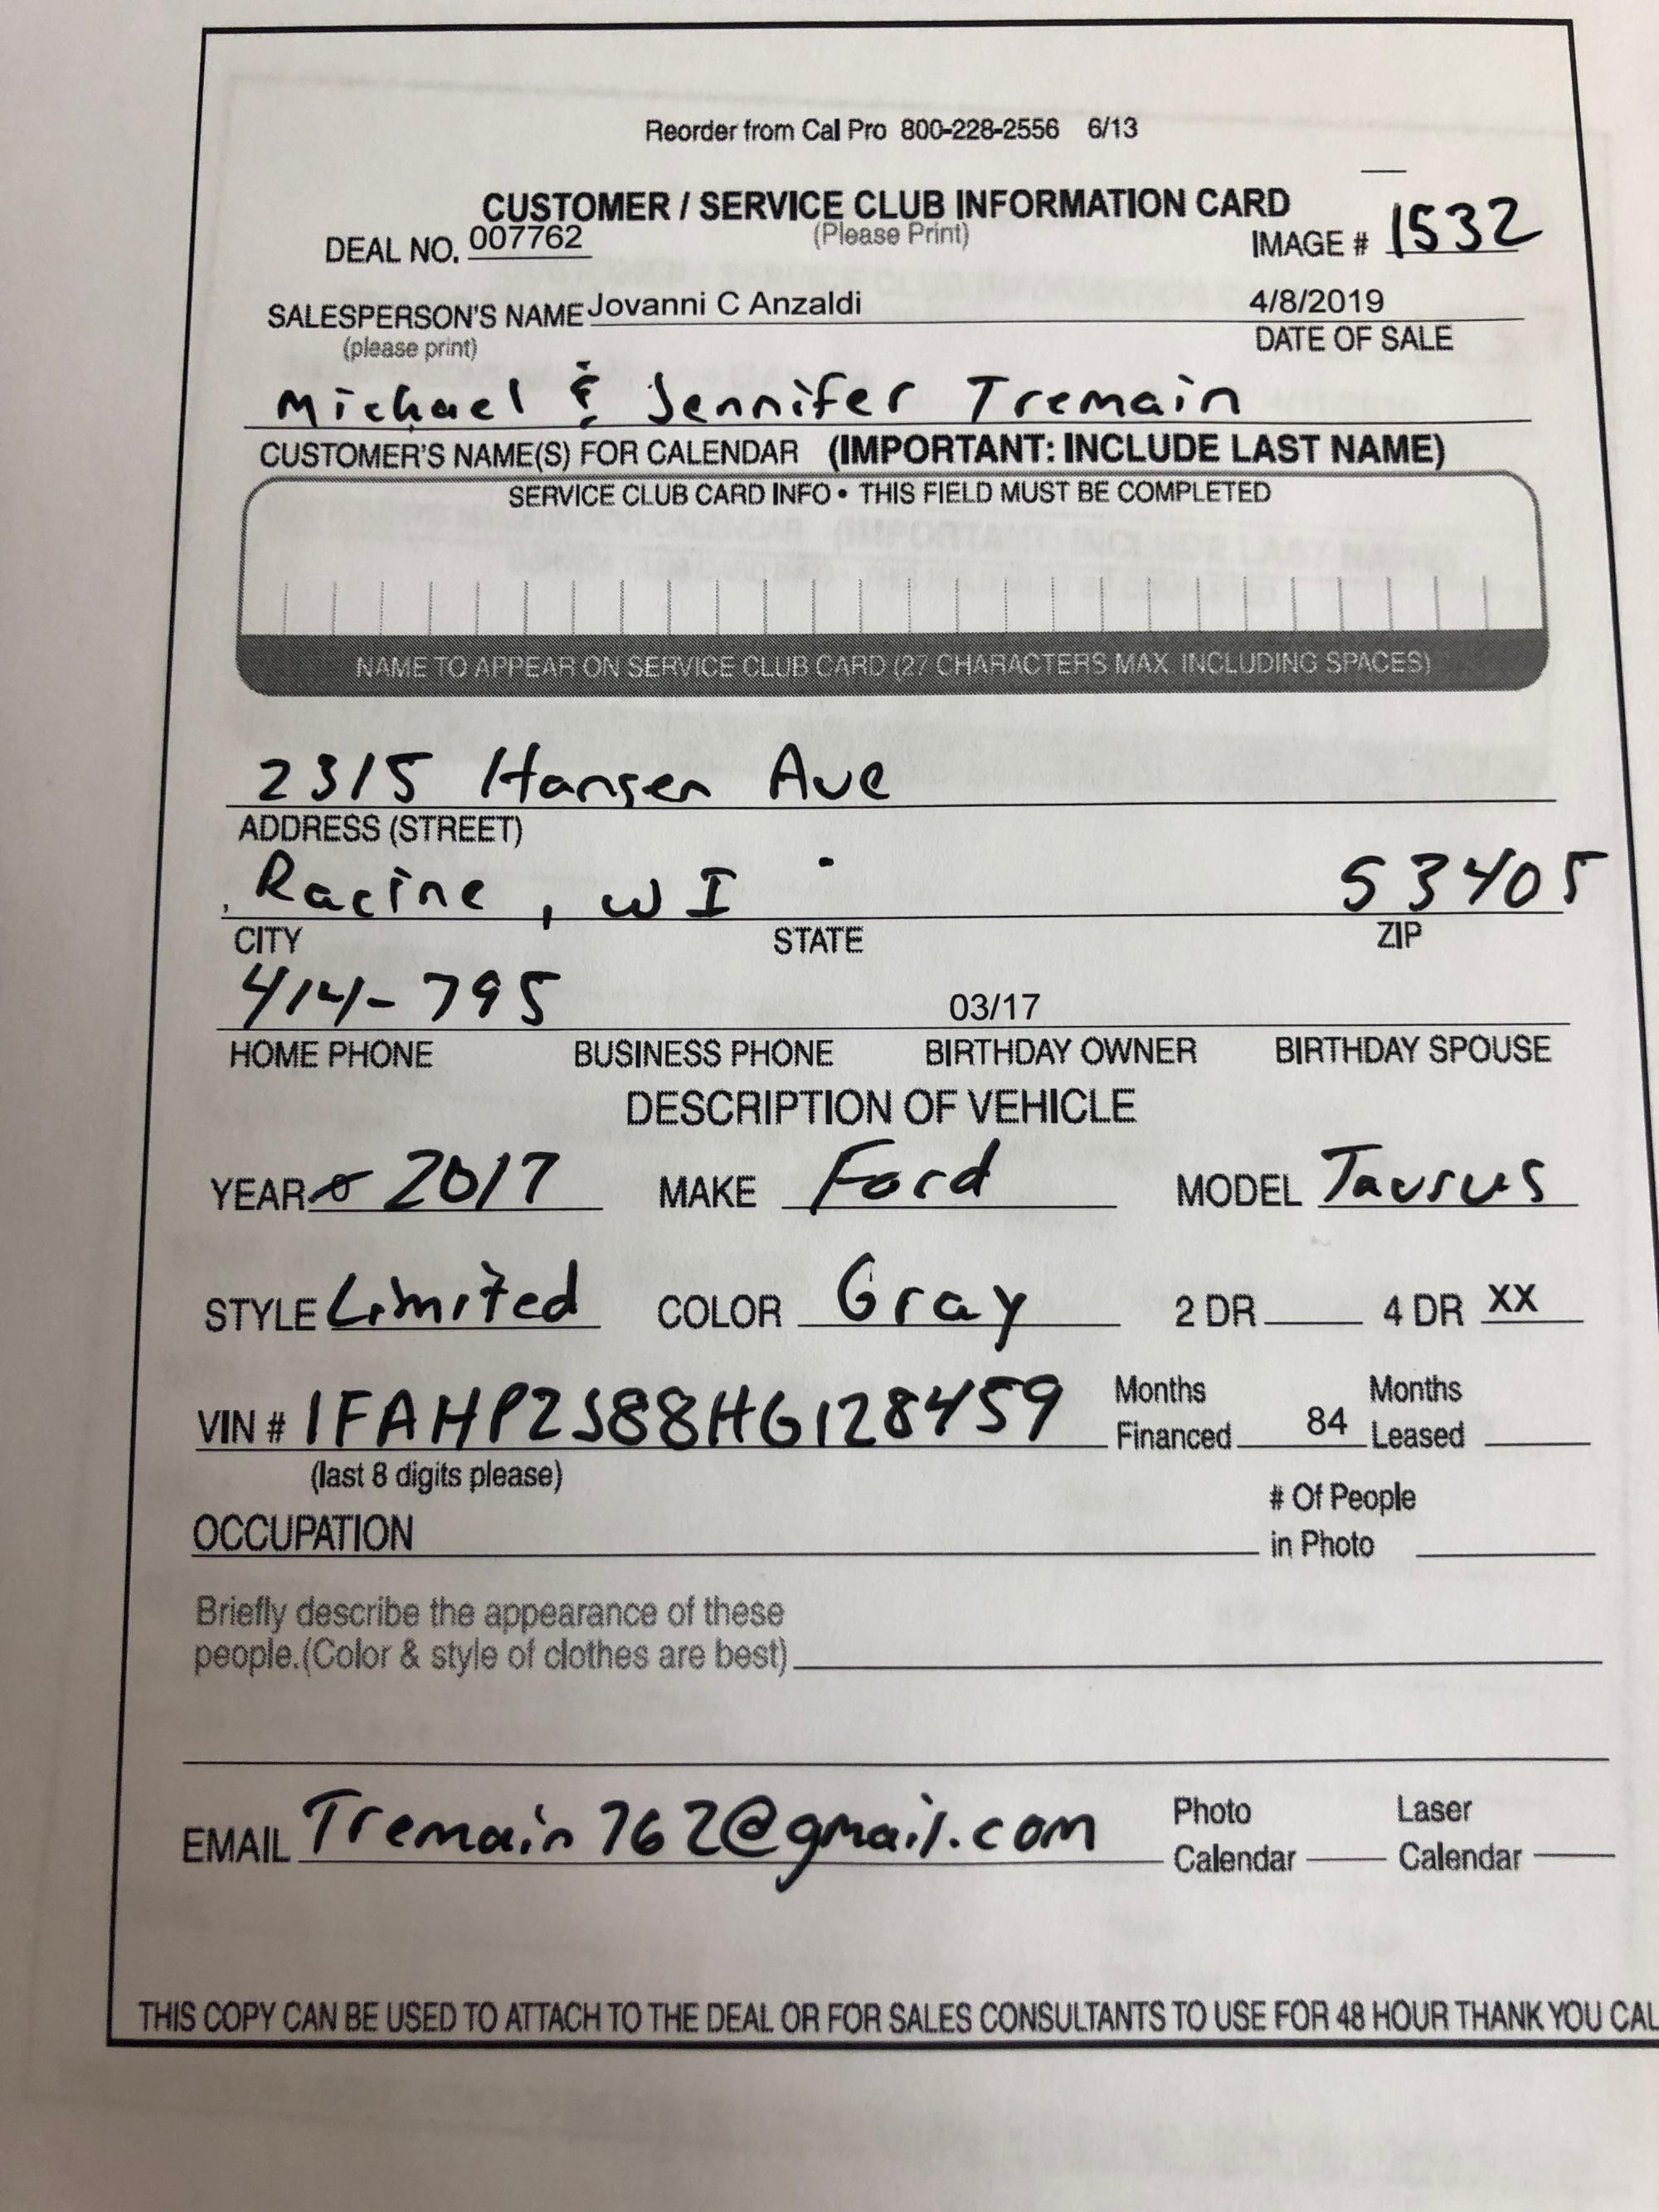 Reorder from Cal Pro 800-228-2556 6/13
CUSTOMER / SERVICE CLUB INFORMATION CARD
(Please Print)
DEAL NO. 007762 IMAGE # 1532
SALESPERSON'S NAME Jovanni C Anzaldi 4/8/2019
(please print) DATE OF SALE
Michael & Jennifer Tremain
CUSTOMER'S NAME(S) FOR CALENDAR (IMPORTANT: INCLUDE LAST NAME)
SERVICE CLUB CARD INFO • THIS FIELD MUST BE COMPLETED
NAME TO APPEAR ON SERVICE CLUB CARD (27 CHARACTERS MAX. INCLUDING SPACES)
2315 Hansen Ave
ADDRESS (STREET)
Racine, WI 53405
CITY STATE ZIP
414-795 03/17
HOME PHONE BUSINESS PHONE BIRTHDAY OWNER BIRTHDAY SPOUSE
DESCRIPTION OF VEHICLE
YEAR 2017 MAKE Ford MODEL Taurus
STYLE Limited COLOR Gray 2 DR 4 DR XX
VIN # 1FAHP2J88HG128459 Months Financed 84 Months Leased
(last 8 digits please)
OCCUPATION # Of People in Photo
Briefly describe the appearance of these
people.(Color & style of clothes are best)
EMAIL Tremain762@gmail.com Photo Calendar Laser Calendar
THIS COPY CAN BE USED TO ATTACH TO THE DEAL OR FOR SALES CONSULTANTS TO USE FOR 48 HOUR THANK YOU CAL